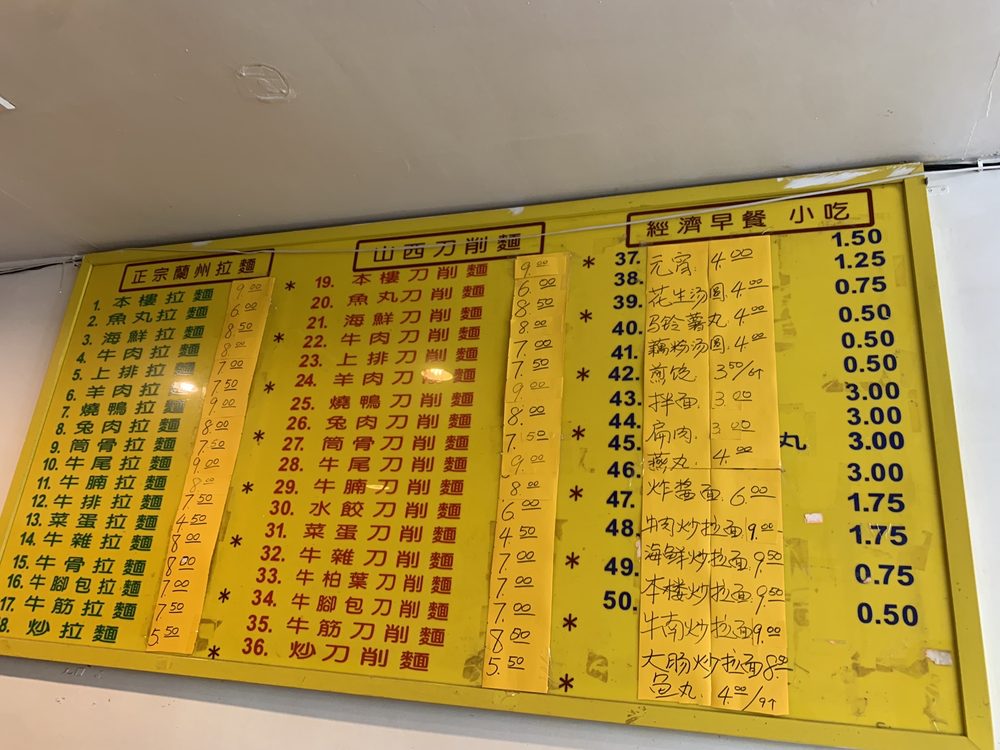 正宗蘭州拉麵
1. 本樓拉麵 9.00
2. 魚丸拉麵 6.00
3. 海鮮拉麵 8.50
4. 牛肉拉麵 8.50
5. 上排拉麵 7.00
6. 羊肉拉麵 7.50
7. 燒鴨拉麵 9.00
8. 兔肉拉麵 8.00
9. 筒骨拉麵 7.50
10. 牛尾拉麵 9.00
11. 牛腩拉麵 8.00
12. 牛排拉麵 7.50
13. 菜蛋拉麵 4.50
14. 牛雜拉麵 8.00
15. 牛骨拉麵 8.00
16. 牛腳包拉麵 7.00
17. 牛筋拉麵 7.50
8. 炒拉麵 5.50
山西刀削麵
* 19. 本樓刀削麵 9.00
20. 魚丸刀削麵 6.00
21. 海鮮刀削麵 8.50
* 22. 牛肉刀削麵 8.00
23. 上排刀削麵 7.00
* 24. 羊肉刀削麵 7.50
25. 燒鴨刀削麵 9.00
26. 兔肉刀削麵 8.00
* 27. 筒骨刀削麵 7.50
28. 牛尾刀削麵 9.00
* 29. 牛腩刀削麵 8.00
30. 水餃刀削麵 6.00
* 31. 菜蛋刀削麵 4.50
32. 牛雜刀削麵 7.00
33. 牛柏葉刀削麵 7.00
* 34. 牛腳包刀削麵 7.00
35. 牛筋刀削麵
* 36. 炒刀削麵 5.50
經濟早餐 小吃
* 37. 1.50
38. 1.25
39. 0.75
* 40. 0.50
41. 0.50
* 42. 0.50
43. 3.00
44. 3.00
* 45. 丸 3.00
46. 3.00
* 47. 1.75
48. 1.75
* 49. 0.75
50. 0.50
*
*
元宵 4.00
花生汤圆 4.00
马铃薯丸 4.00
藕粉汤圆 4.00
煎饺 3.50/6个
拌面 3.00
扁肉 3.00
燕丸 4.00
炸醬面 6.00
牛肉炒拉面 9.00
海鲜炒拉面 9.50
本楼炒拉面 9.50
牛南炒拉面 9.00
大肠炒拉面 8.00
鱼丸 4.00/9个